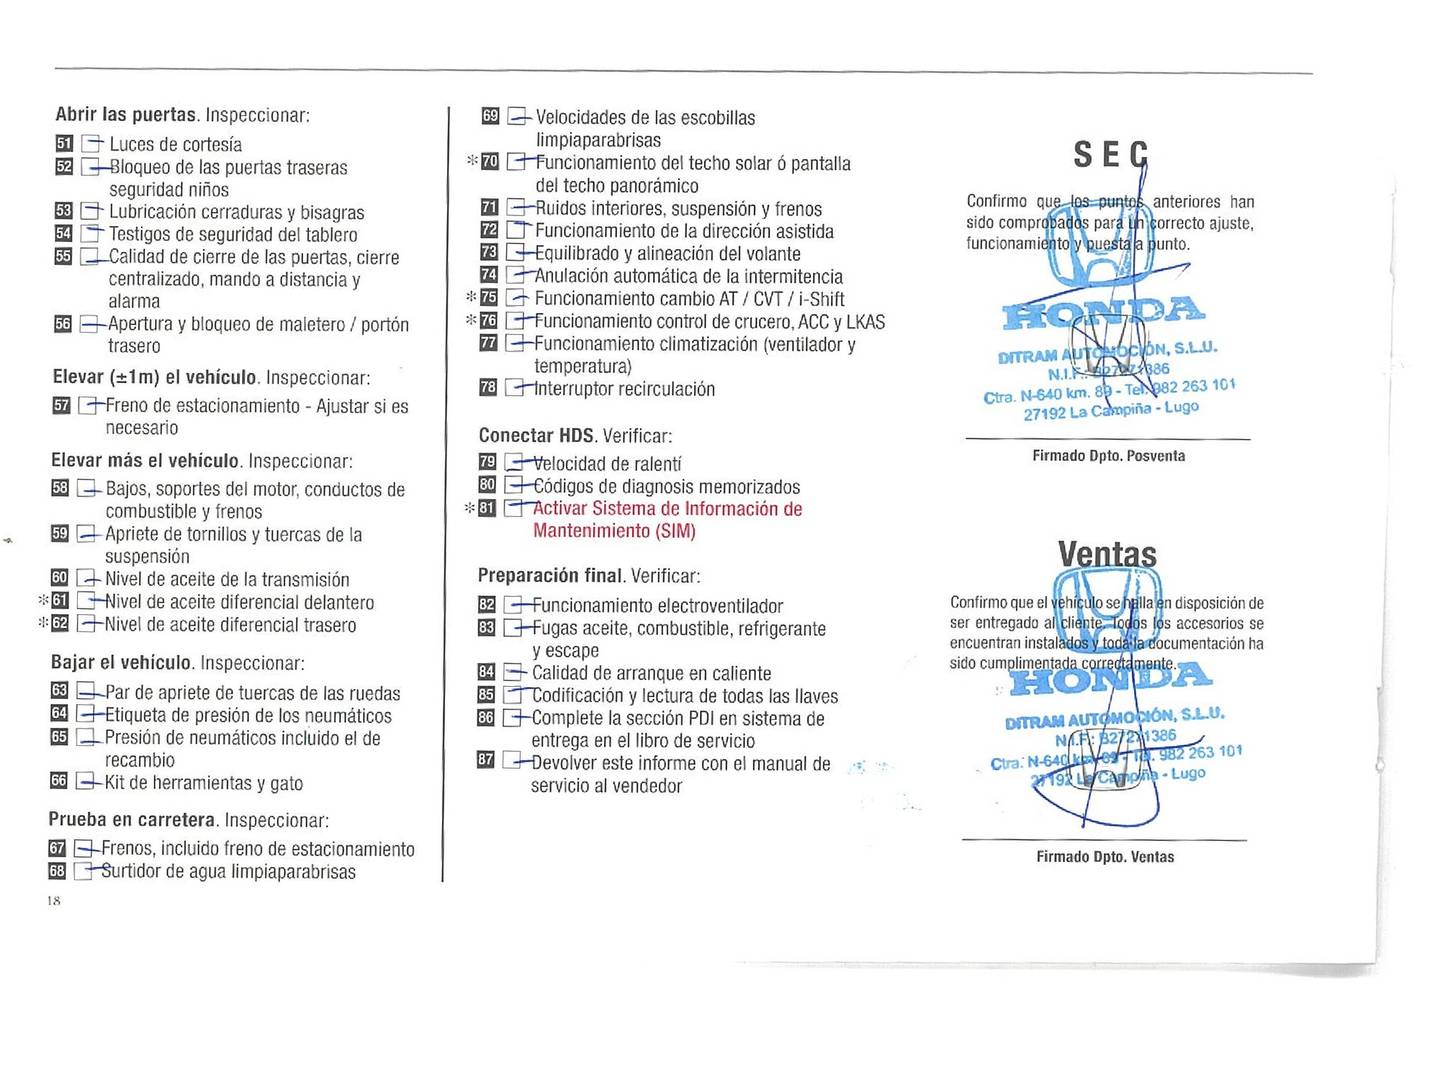 Abrir las puertas. Inspeccionar:
51 Luces de cortesía
52 Bloqueo de las puertas traseras
seguridad niños
53 Lubricación cerraduras y bisagras
54 Testigos de seguridad del tablero
55 Calidad de cierre de las puertas, cierre
centralizado, mando a distancia y
alarma
56 Apertura y bloqueo de maletero / portón
trasero
Elevar (±1m) el vehículo. Inspeccionar:
57 Freno de estacionamiento - Ajustar si es
necesario
Elevar más el vehículo. Inspeccionar:
58 Bajos, soportes del motor, conductos de
combustible y frenos
59 Apriete de tornillos y tuercas de la
suspensión
60 Nivel de aceite de la transmisión
*61 Nivel de aceite diferencial delantero
*62 Nivel de aceite diferencial trasero
Bajar el vehículo. Inspeccionar:
63 Par de apriete de tuercas de las ruedas
64 Etiqueta de presión de los neumáticos
65 Presión de neumáticos incluido el de
recambio
66 Kit de herramientas y gato
Prueba en carretera. Inspeccionar:
67 Frenos, incluido freno de estacionamiento
68 Surtidor de agua limpiaparabrisas
18
69 Velocidades de las escobillas
limpiaparabrisas
*70 Funcionamiento del techo solar ó pantalla
del techo panorámico
71 Ruidos interiores, suspensión y frenos
72 Funcionamiento de la dirección asistida
73 Equilibrado y alineación del volante
74 Anulación automática de la intermitencia
*75 Funcionamiento cambio AT / CVT / i-Shift
*76 Funcionamiento control de crucero, ACC y LKAS
77 Funcionamiento climatización (ventilador y
temperatura)
78 Interruptor recirculación
Conectar HDS. Verificar:
79 Velocidad de ralentí
80 Códigos de diagnosis memorizados
*81 Activar Sistema de Información de
Mantenimiento (SIM)
Preparación final. Verificar:
82 Funcionamiento electroventilador
83 Fugas aceite, combustible, refrigerante
y escape
84 Calidad de arranque en caliente
85 Codificación y lectura de todas las llaves
86 Complete la sección PDI en sistema de
entrega en el libro de servicio
87 Devolver este informe con el manual de
servicio al vendedor
SEC
Confirmo que los puntos anteriores han
sido comprobados para un correcto ajuste,
funcionamiento y puesta a punto.
HONDA
DITRAM AUTOMOCIÓN, S.L.U.
N.I.F.: B27271386
Ctra. N-640 km. 89 - Tel. 982 263 101
27192 La Campiña - Lugo
Firmado Dpto. Posventa
Ventas
Confirmo que el vehículo se halla en disposición de
ser entregado al cliente. Todos los accesorios se
encuentran instalados y toda la documentación ha
sido cumplimentada correctamente.
HONDA
DITRAM AUTOMOCIÓN, S.L.U.
N.I.F.: B27271386
Ctra. N-640 km. 89 - Tel. 982 263 101
27192 La Campiña - Lugo
Firmado Dpto. Ventas